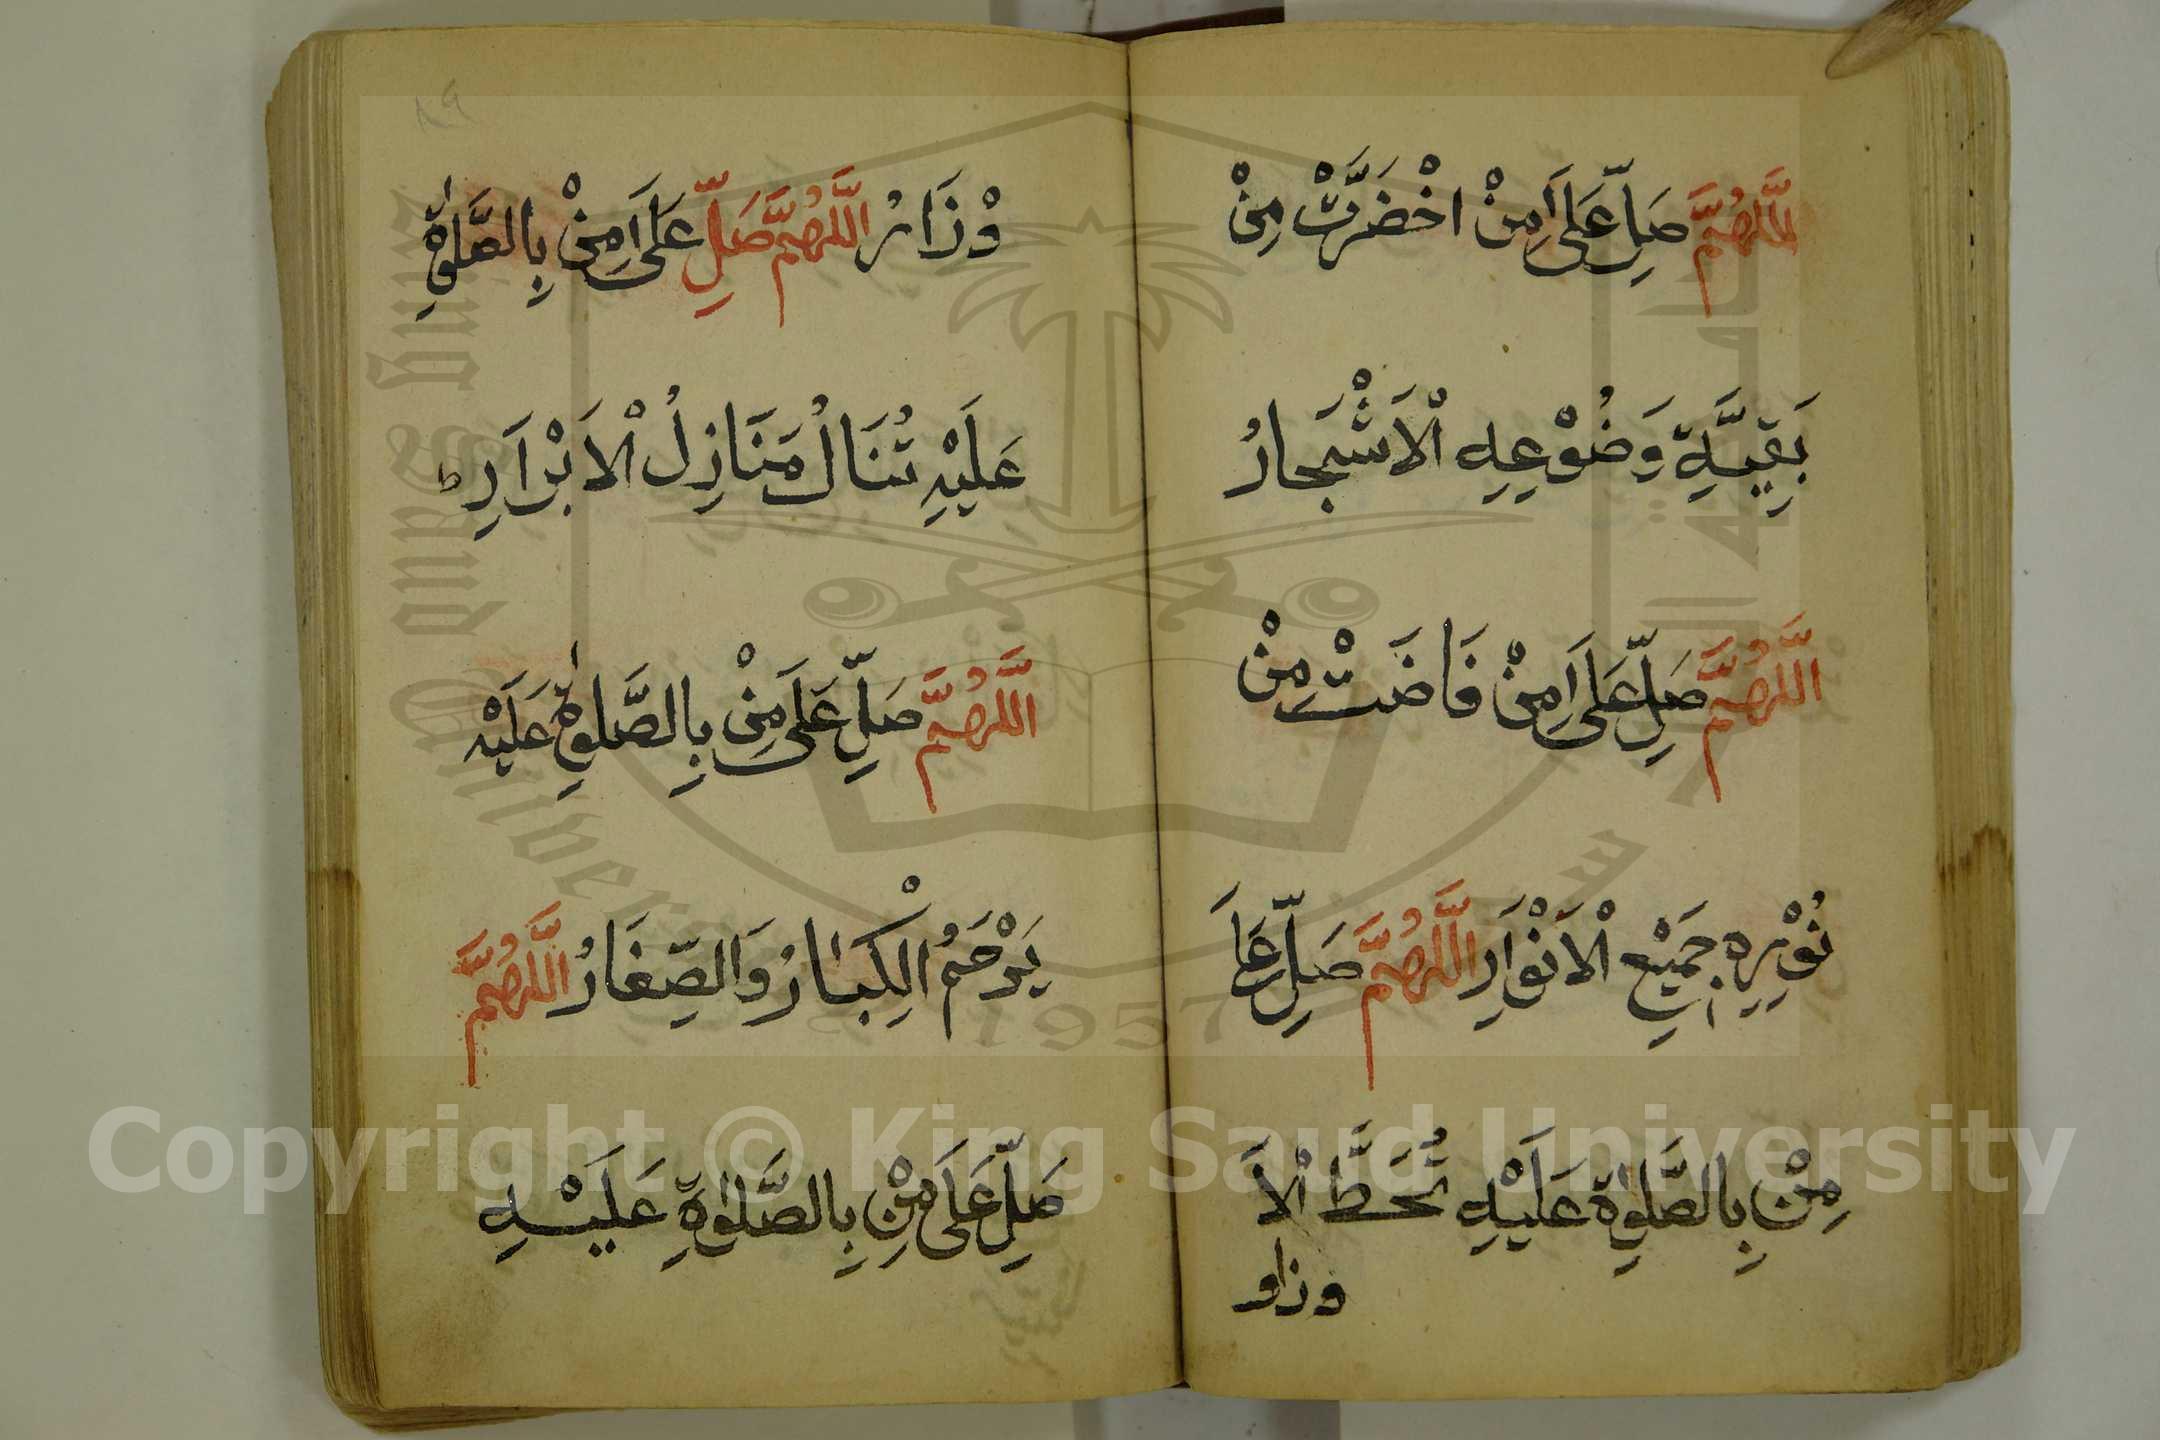 اَللّٰهُمَّ صَلِّ عَلَى مَنْ اخْضَرَّتْ مِنْ
بَقِيَّةِ وَضُوْءِهِ الْاَشْجَارُ
اَللّٰهُمَّ صَلِّ عَلَى مَنْ فَاضَتْ مِنْ
نُوْرِهِ جَمِيْعُ الْاَنْوَارِ اَللّٰهُمَّ صَلِّ عَلَى
مَنْ بِالصَّلٰوةِ عَلَيْهِ تُحَطُّ الْاَ
وزاو
وْزَارُ اَللّٰهُمَّ صَلِّ عَلَى مَنْ بِالصَّلٰوةِ
عَلَيْهِ تُنَالُ مَنَازِلُ الْاَبْرَارِ
اَللّٰهُمَّ صَلِّ عَلَى مَنْ بِالصَّلٰوةِ عَلَيْهِ
يَرْحَمُ الْكِبَارُ وَالصِّغَارُ اَللّٰهُمَّ
صَلِّ عَلَى مَنْ بِالصَّلٰوةِ عَلَيْهِ
٨٩
1957
Copyright © King Saud University